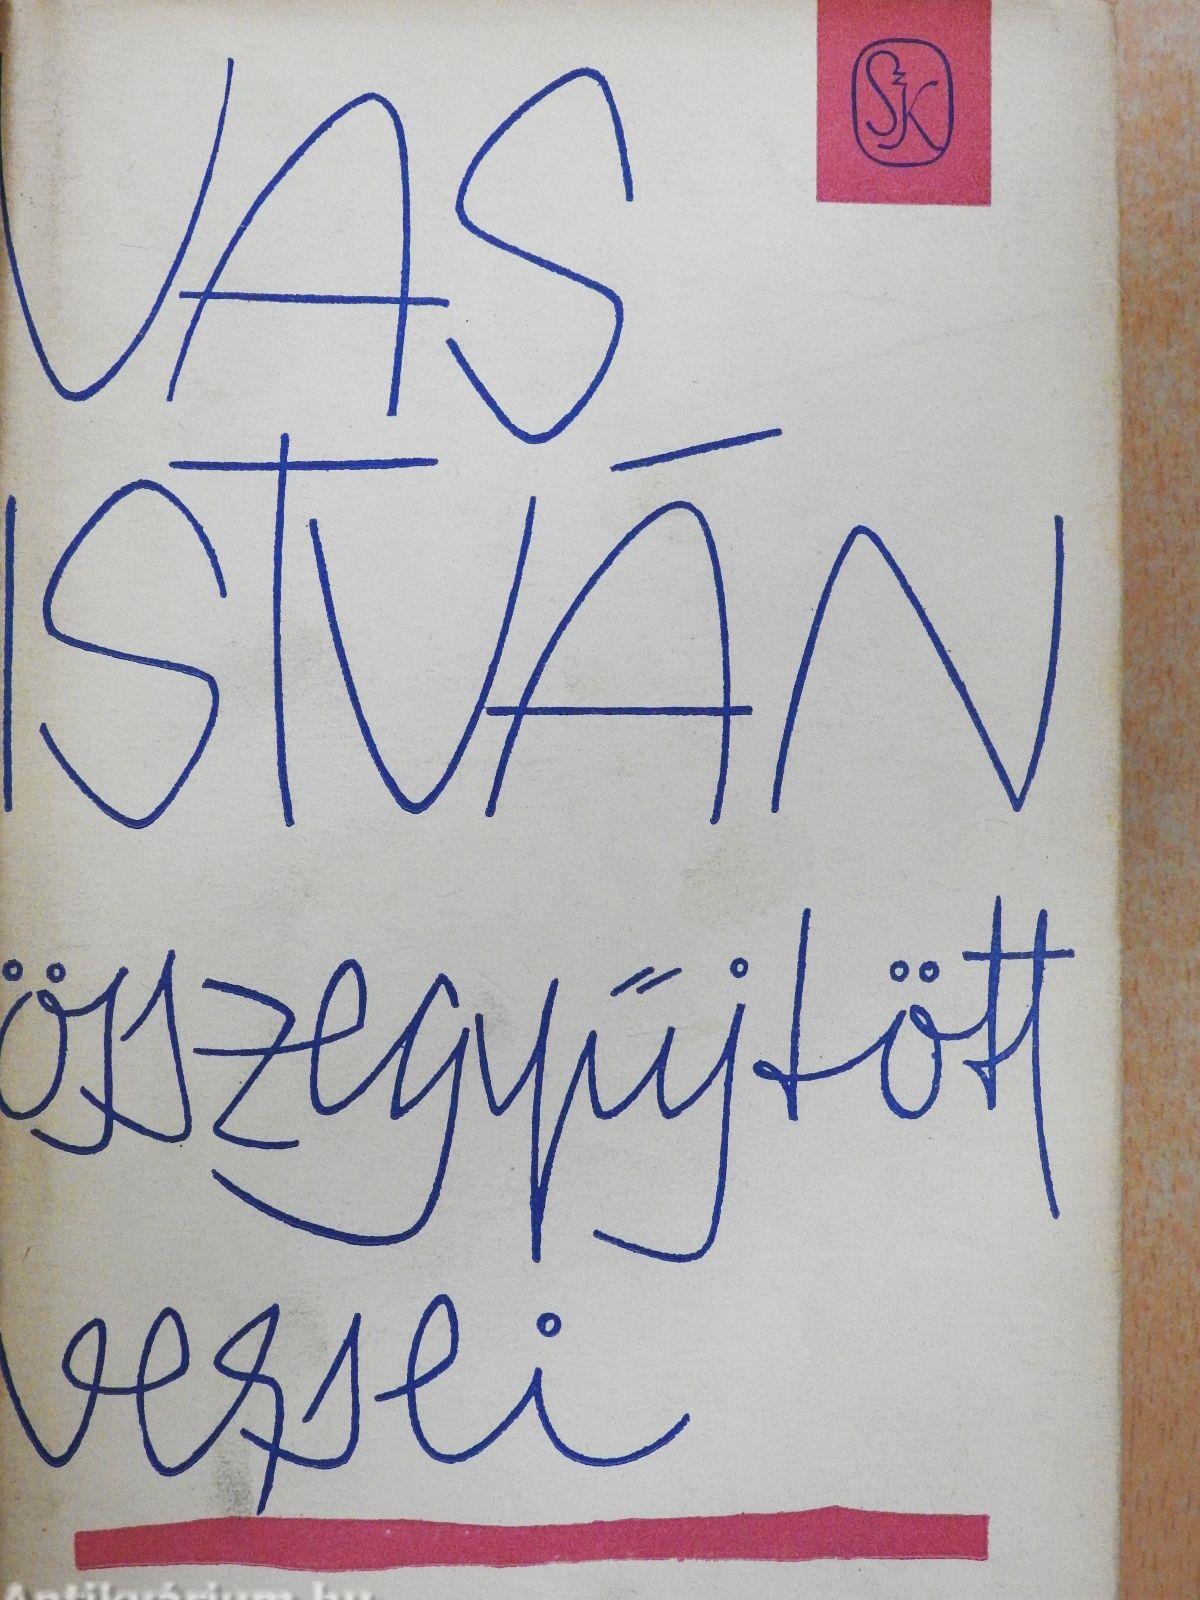 SzK
VAS
ISTVÁN
összegyűjtött
versei
Antikvárium.hu